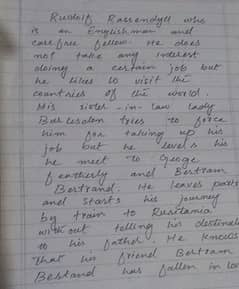 Rudolf Rassendyll who
is an Englishman and
carefree fellow. He does
not take any interest
doing a certain job but
he likes to visit the
countries of the world.
His sister-in-law lady
Burlesdon tries to force
him for taking up his
job but he his
he meet to Geoge
Featherly and Bertram
Bertrand. He leaves paris
and starts his journey
by train to Rusitania
without telling his destinat
to his father. He knows
that his friend Bertram
Bestand has fallen in lov